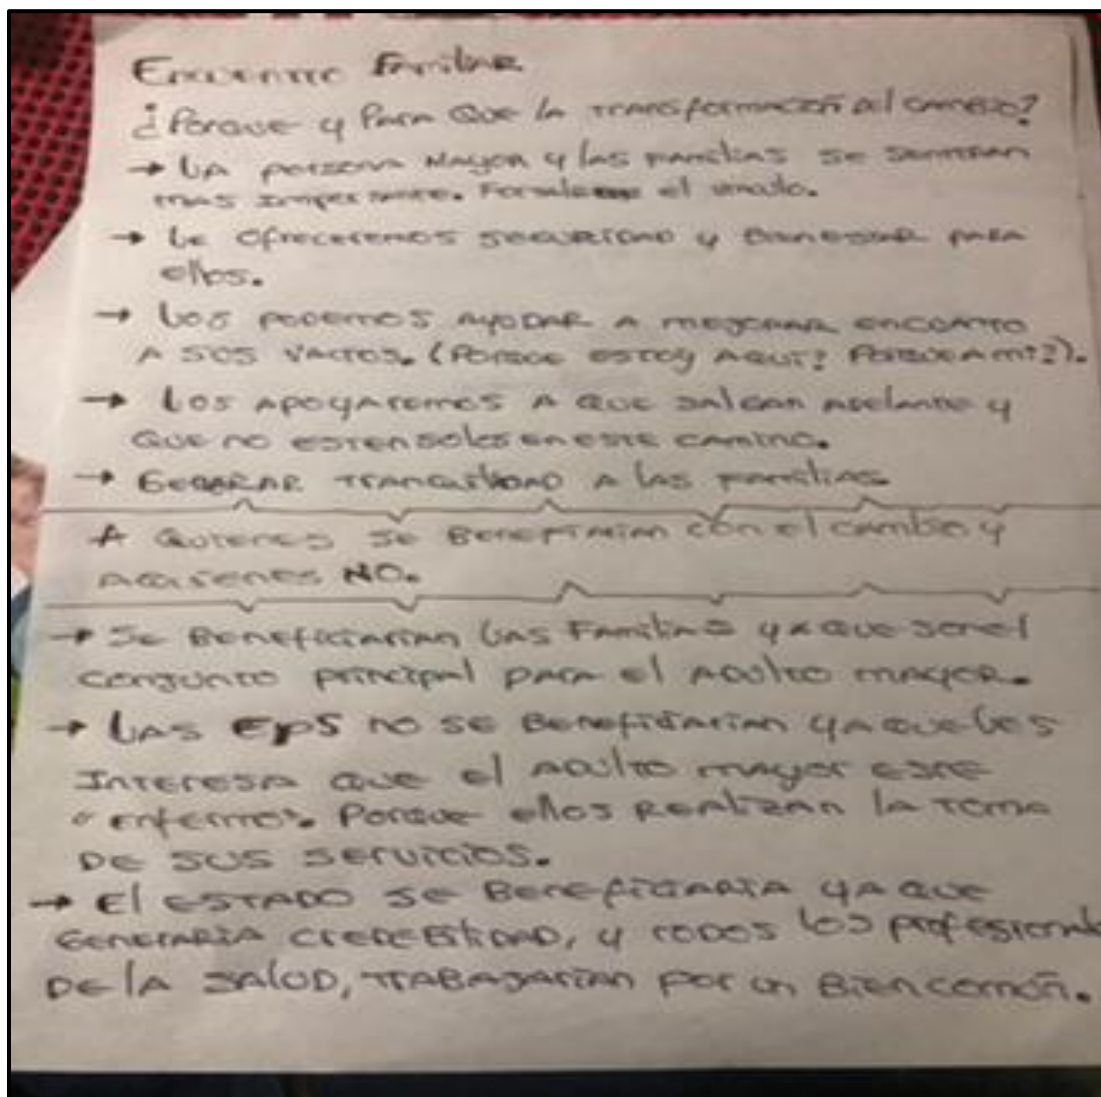 Encuentro Familiar
¿Porque y Para Que la transformación del cambio?
→ La persona Mayor y las familias se sentiran
mas importante. Fortalece el vinculo.
→ Le ofreceremos seguridad y bienestar para
ellos.
→ Los podemos ayudar a mejorar encuanto
a sus vacios. (Porque estoy aqui? Porque a mi?).
→ Los apoyaremos a que salgan adelante y
que no esten solos en este camino.
→ Generar tranquilidad a las familias.
A quienes se beneficiarian con el cambio y
aquienes NO.
→ Se beneficiarian las Familias ya que son el
conjunto principal para el adulto mayor.
→ Las EPS no se beneficiarian ya que les
interesa que el adulto mayor este
"enfermo". Porque ellos realizan la toma
de sus servicios.
→ El estado se beneficiaria ya que
generaria credebilidad, y todos los profesionales
de la salud, trabajarian por un bien común.